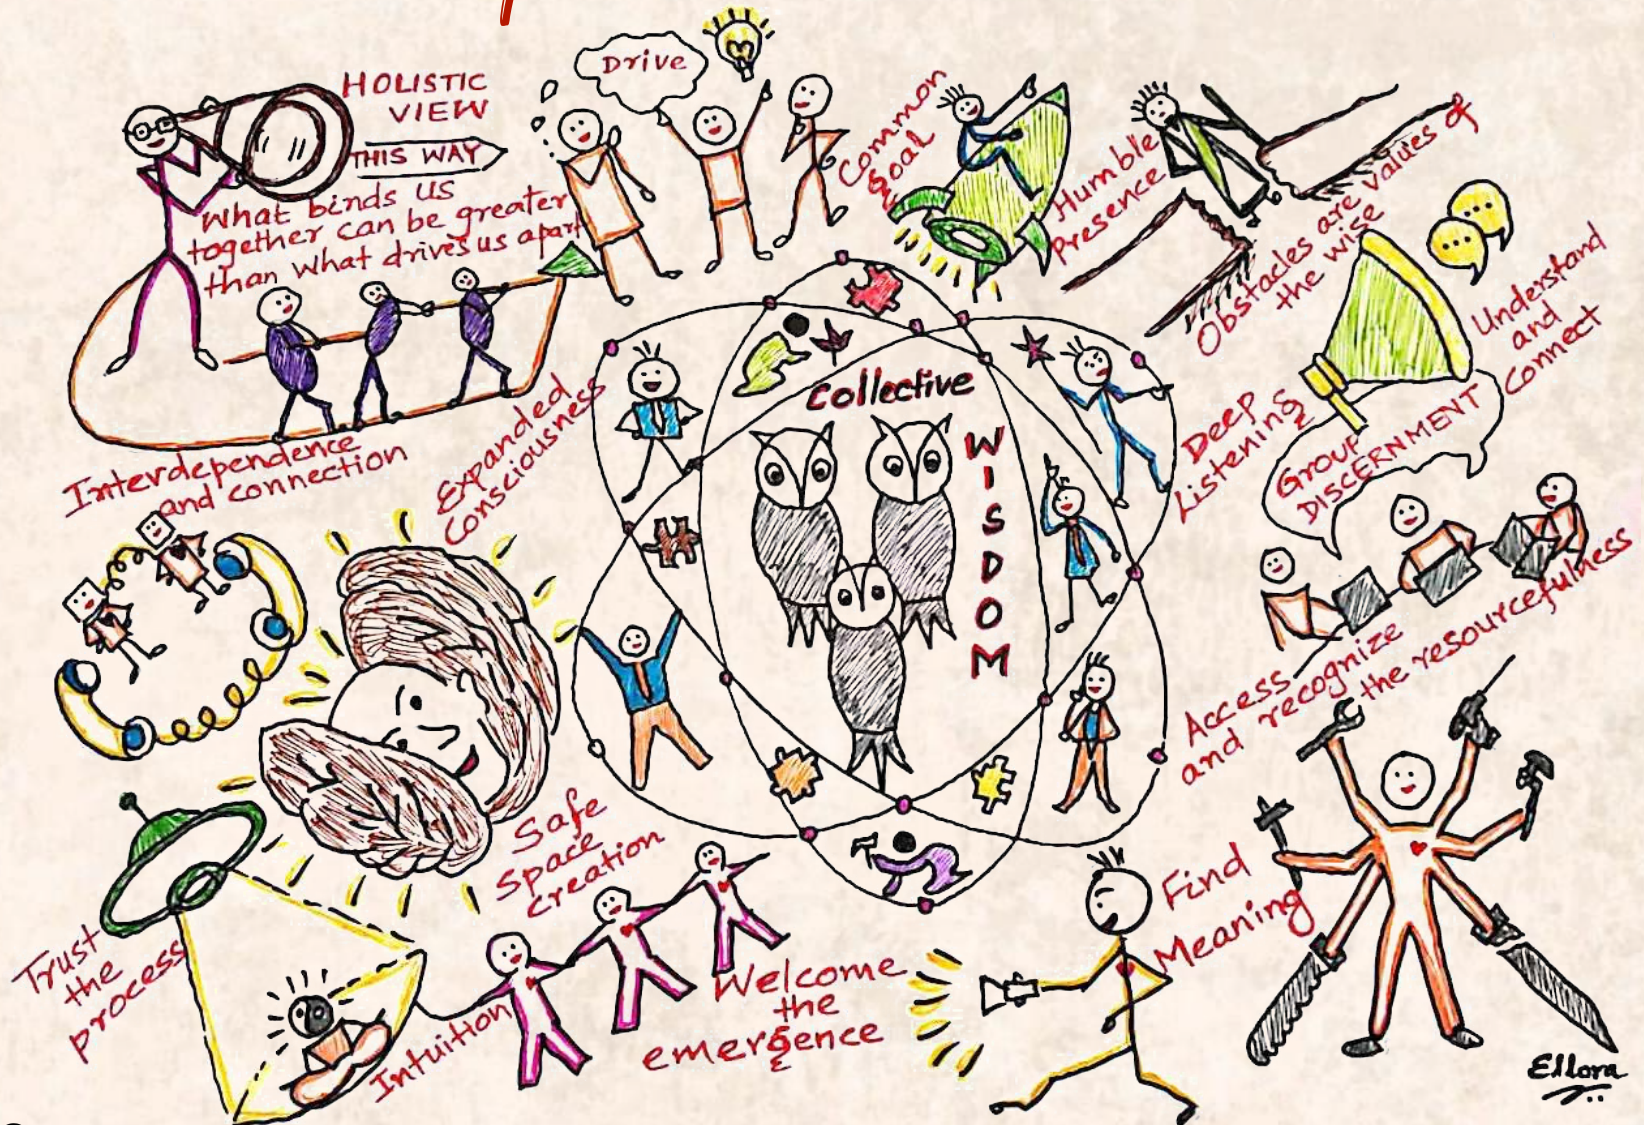 HOLISTIC
VIEW
THIS WAY
What binds us
together can be greater
than what drives us apart
Drive
Common
Goal
Humble
Presence
Obstacles are values of
the wise
Understand
and
Connect
Deep
Listening
GROUP
DISCERNMENT
Interdependence
and connection
Expanded
Consciousness
Collective
WISDOM
Access
and recognize
the resourcefulness
Safe
Space
creation
Trust
the
process
Intuition
Welcome
the
emergence
Find
Meaning
Ellora